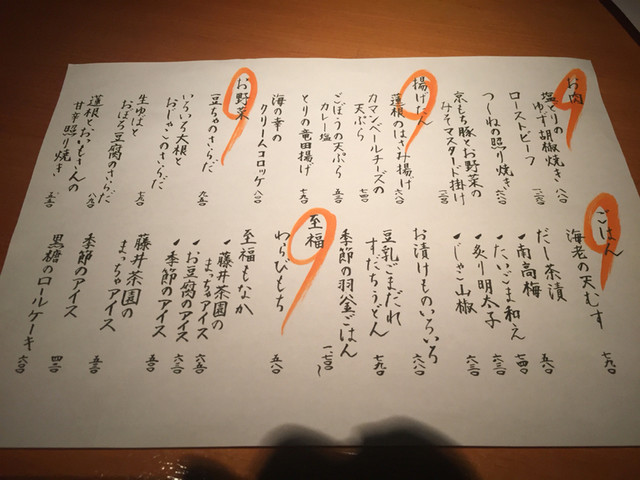 お肉
塩とりの
ゆず胡椒焼き 八八〇
ローストビーフ
つくねの照り焼き 六八〇
京もち豚とお野菜の
みそマスタード掛け
揚げたん
蓮根のはさみ揚げ
カマンベールチーズの
天ぷら 七四〇
ごぼうの天ぷら
カレー塩 五三〇
とりの竜田揚げ 七九〇
海の幸の
クリームコロッケ 八四〇
お野菜
豆ちゃのさらだ 九五〇
いろいろ大根と
おじゃこのさらだ
生ゆばと
おぼろ豆腐のさらだ
蓮根とおいもさんの
甘辛照り焼き
ごはん
海老の天むす 七九〇
だし茶漬
・南高梅 五八〇
・たいごま和え 七四〇
・炙り明太子 六三〇
・じゃこ山椒 六三〇
お漬けものいろいろ 六八〇
豆乳ごまだれ
すだちうどん 七九〇
季節の羽釜ごはん
至福
わらびもち 五八〇
至福もなか
・藤井茶園の
まっちゃアイス 六五〇
・お豆腐のアイス 六三〇
・季節のアイス 六三〇
藤井茶園の
まっちゃアイス
季節のアイス 五三〇
黒糖のロールケーキ 六三〇